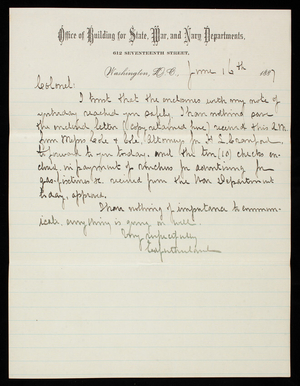 Office of Building for State, War, and Navy Departments,
612 SEVENTEENTH STREET,
Washington, D.C., June 16th 1887
Colonel:
I trust that the enclosures with my note of
yesterday reached you safely. I have nothing save
the enclosed letter (Copy retained here) received this A.M.
from Messrs Cole & Cole, Attorneys for H. L. Crawford
to forward to you today, and the ten (10) checks en-
closed, in payment of vouchers for advertising for
gas-fixtures &c. received from the War Department
today, approved.
I have nothing of importance to commun-
icate, everything is going on well.
Very respectfully